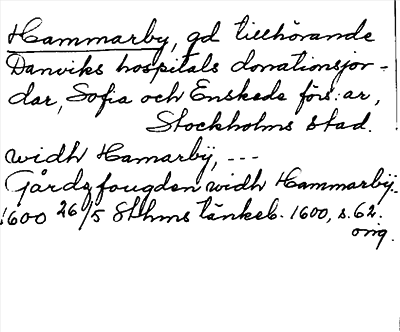 Hammarby, gd tillhörande
Danviks hospitals donationsjor-
dar, Sofia och Enskede förs:ar,
Stockholms stad.
widh Hamarbÿ, ---
Gårdz fougden widh Hammarbÿ.
1600 26/5 Sthms tänkeb. 1600, s. 62.
orig.